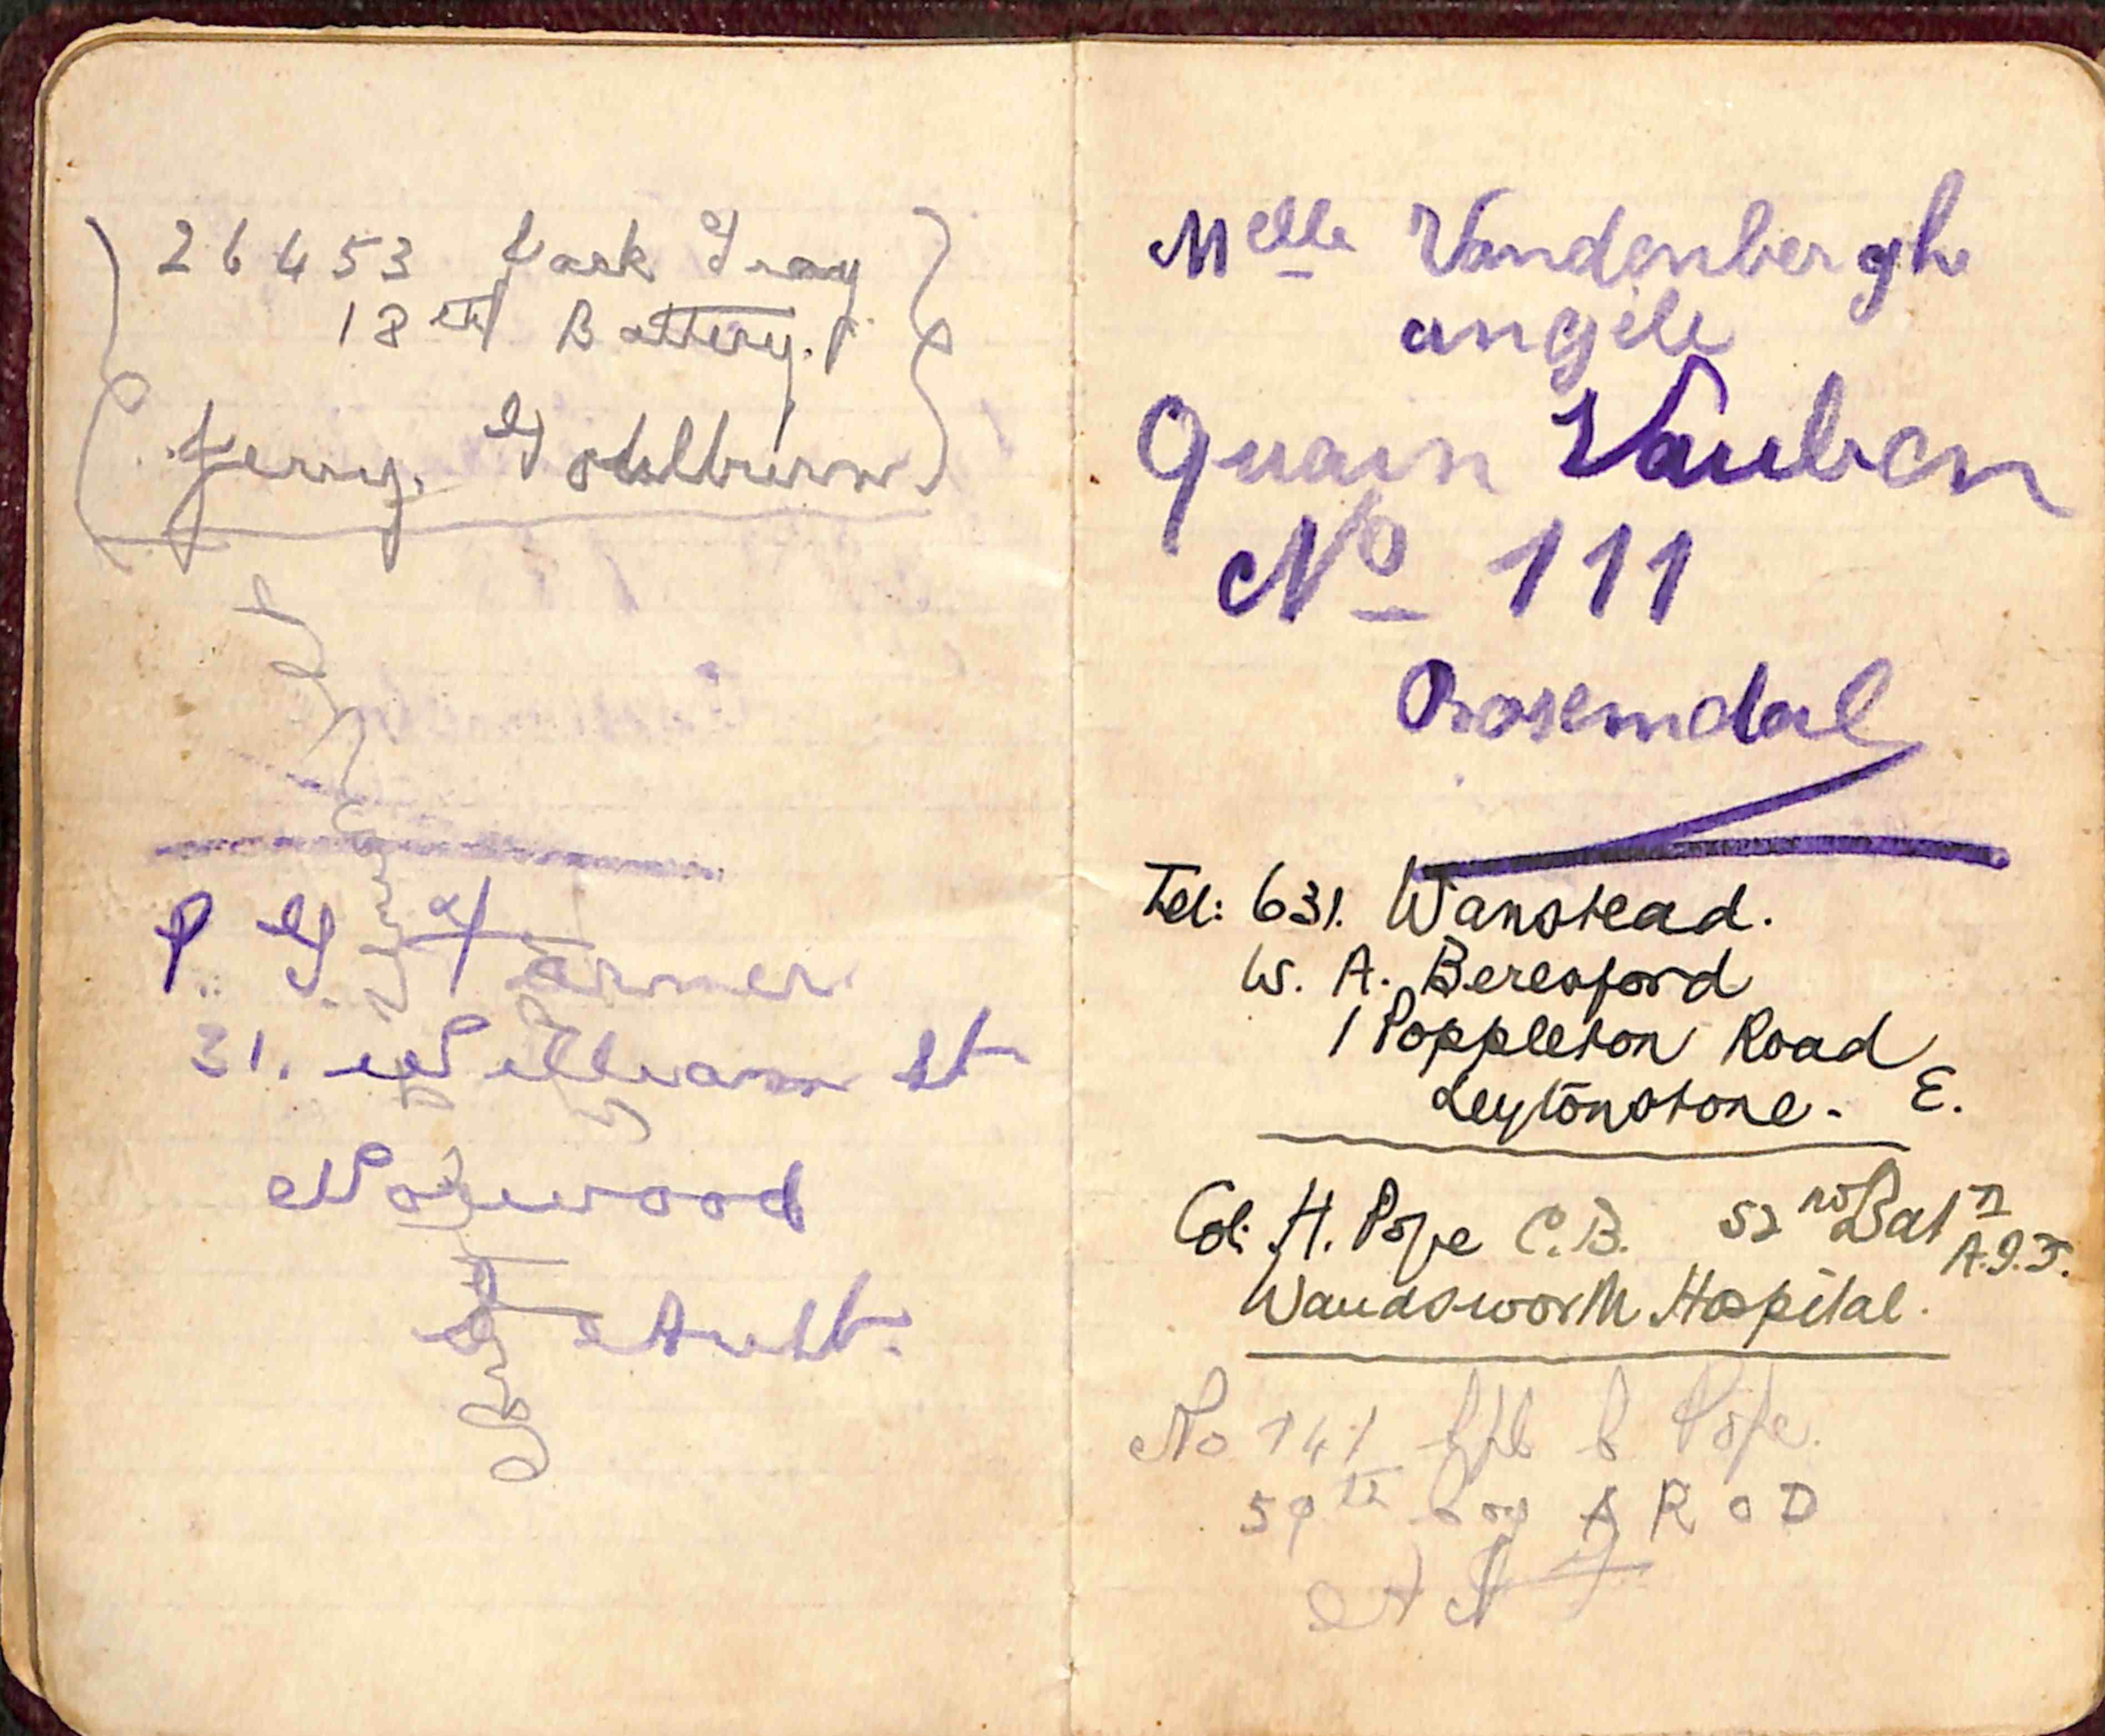 26453 Jack Gray
18th Battery.
Jerry.
P. G. Farmer
31. William St
Norwood
S Aust.
Melle Vandenbergh
angèle
Quain Vauban
No 111
Rosendal
Tel: 631. Wanstead.
W. A. Beresford
1 Poppleton Road
Leytonstone. E.
Col: H. Pope C.B. 52nd Batn
A.I.F.
Wandsworth Hospital.
No 141 Pope.
59th Coy A R O D
A I F